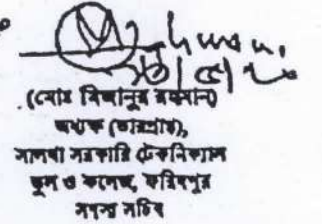 (মোঃ মিজানুর রহমান)
অধ্যক্ষ (ভারপ্রাপ্ত),
সালথা সরকারি টেকনিক্যাল
স্কুল ও কলেজ, ফরিদপুর
সদস্য সচিব